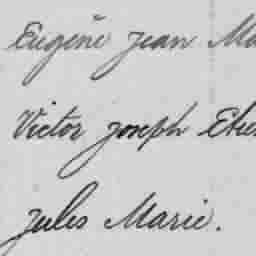 Eugène Jean Ma
Victor Joseph Etie
Jules Marie.